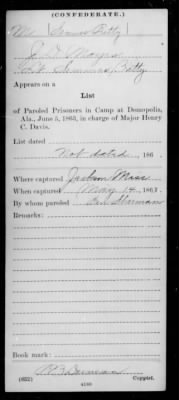 (CONFEDERATE.)
Appears on a
List
of Paroled Prisoners in Camp at Demopolis,
Ala., June 5, 1863, in charge of Major Henry
C. Davis.
List dated
Not dated, 186 .
Where captured Jackson Miss
When captured May 14, 1863.
By whom paroled Gen Sherman
Remarks:
Book mark:
(622)
Copyist.